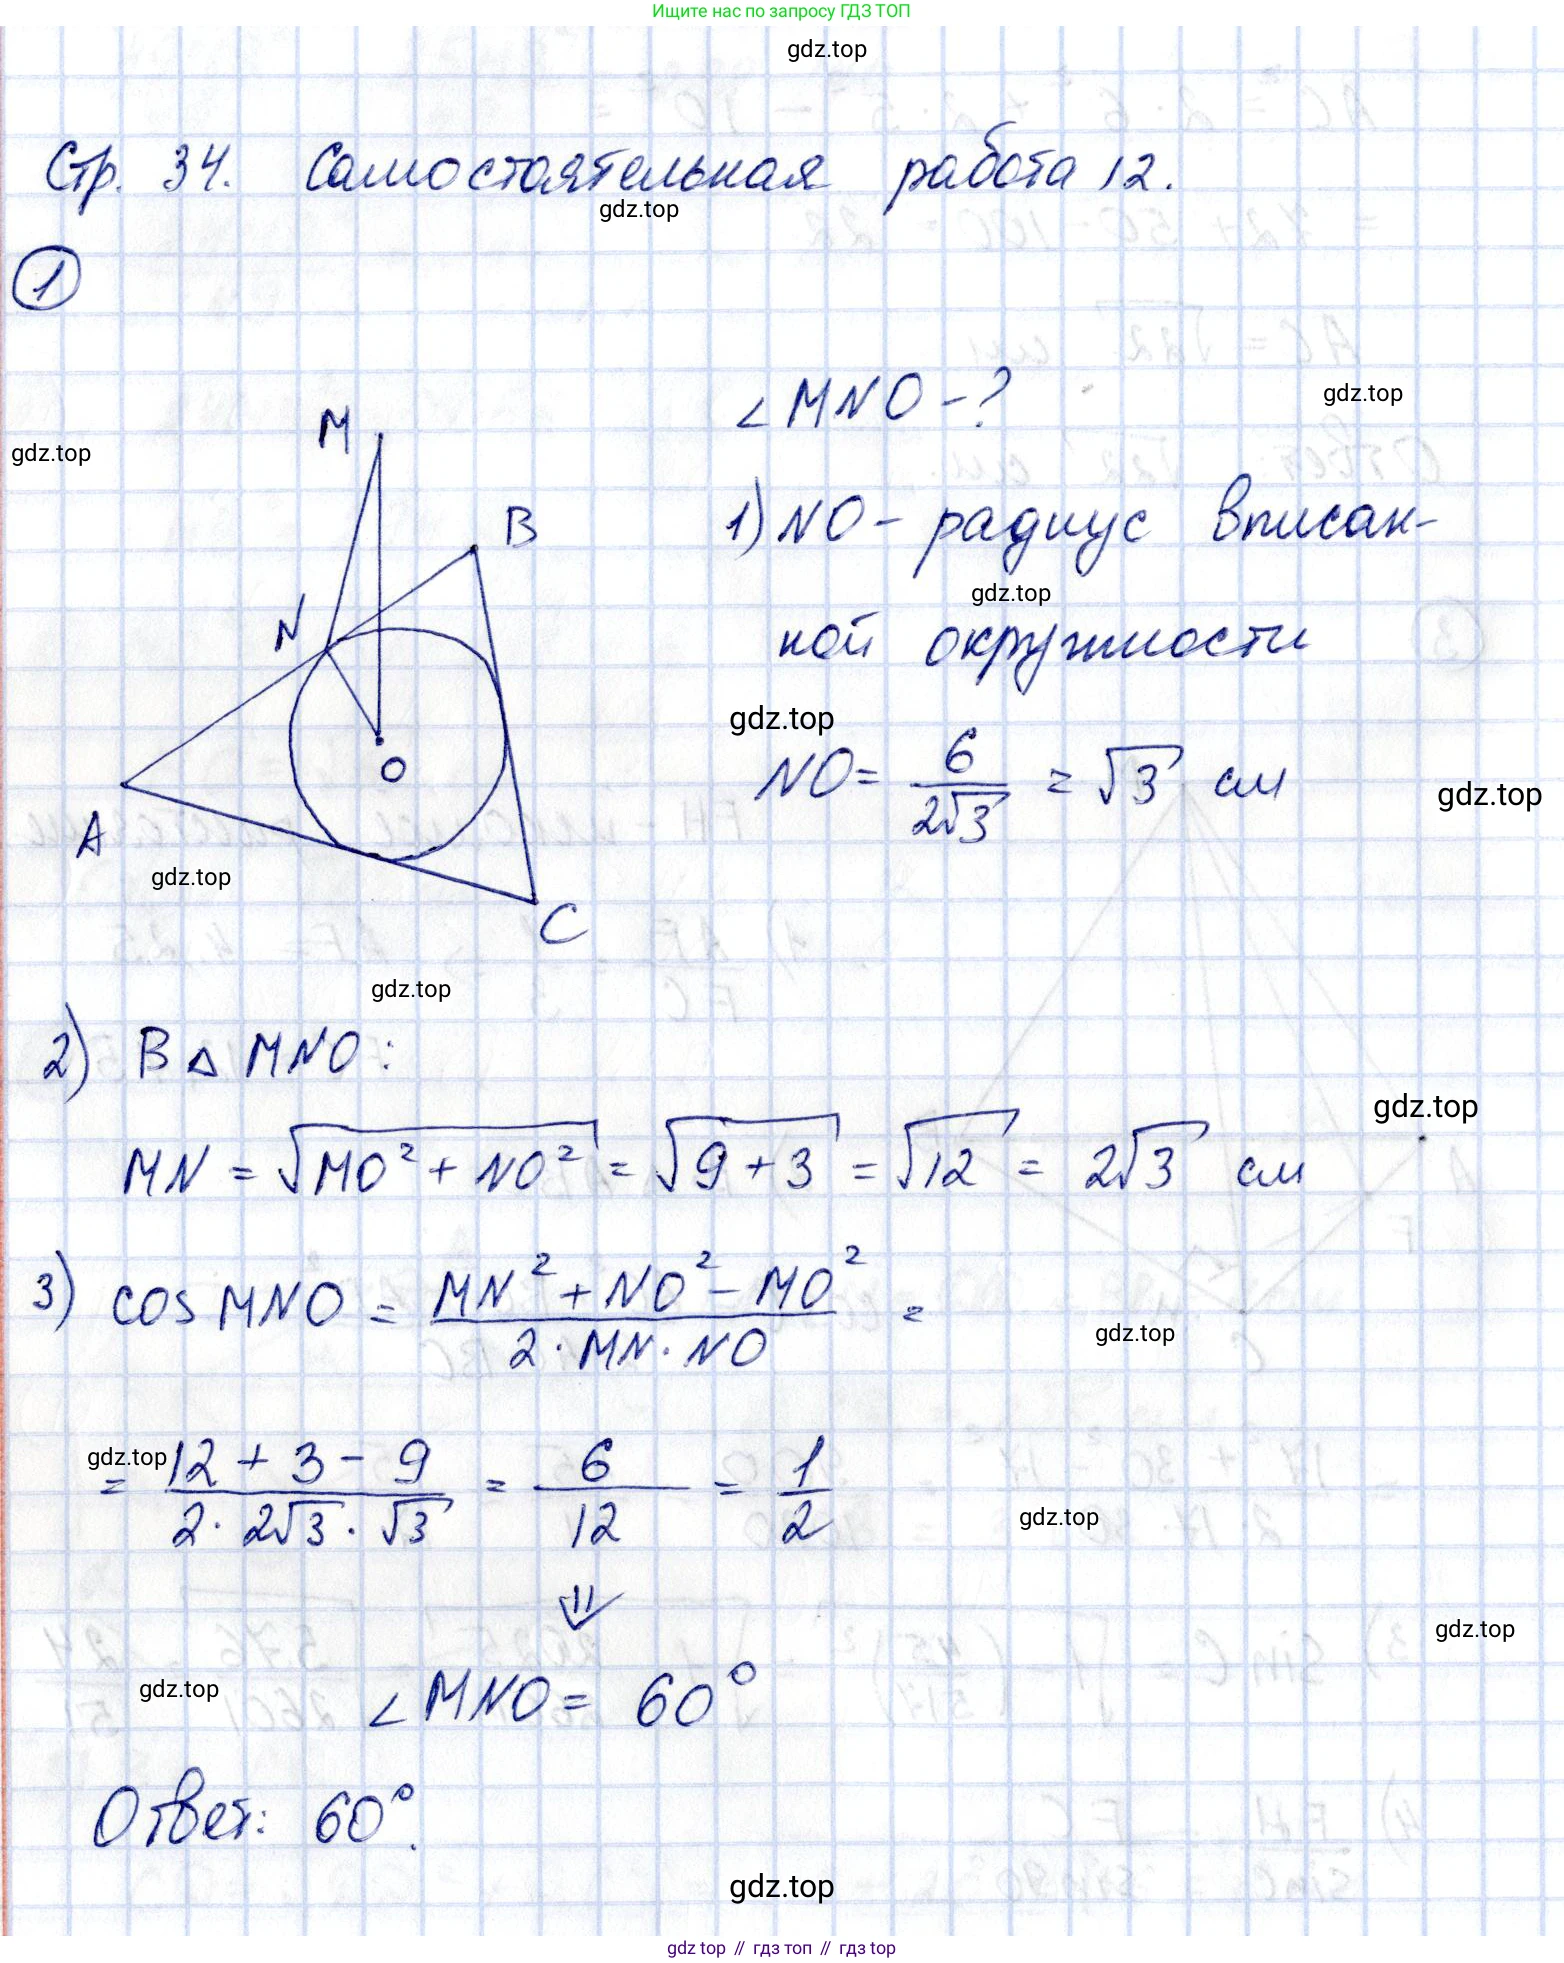 Ищите нас по запросу ГДЗ ТОП
gdz.top
Стр. 34. Самостоятельная работа 12.
gdz.top
1
∠MNO - ?
gdz.top
M
gdz.top
B
1) NO - радиус вписан-
gdz.top
N
ной окружности
gdz.top
O
NO = 6/(2√3) = √3 см
gdz.top
A
gdz.top
C
gdz.top
2) В △ MNO:
gdz.top
MN = √(MO² + NO²) = √(9 + 3) = √12 = 2√3 см
3) cos MNO = (MN² + NO² - MO²)/(2 · MN · NO) =
gdz.top
gdz.top
= (12 + 3 - 9)/(2 · 2√3 · √3) = 6/12 = 1/2
gdz.top
⇓
gdz.top
gdz.top
∠MNO = 60°
Ответ: 60°.
gdz.top
gdz top // гдз топ // гдз top